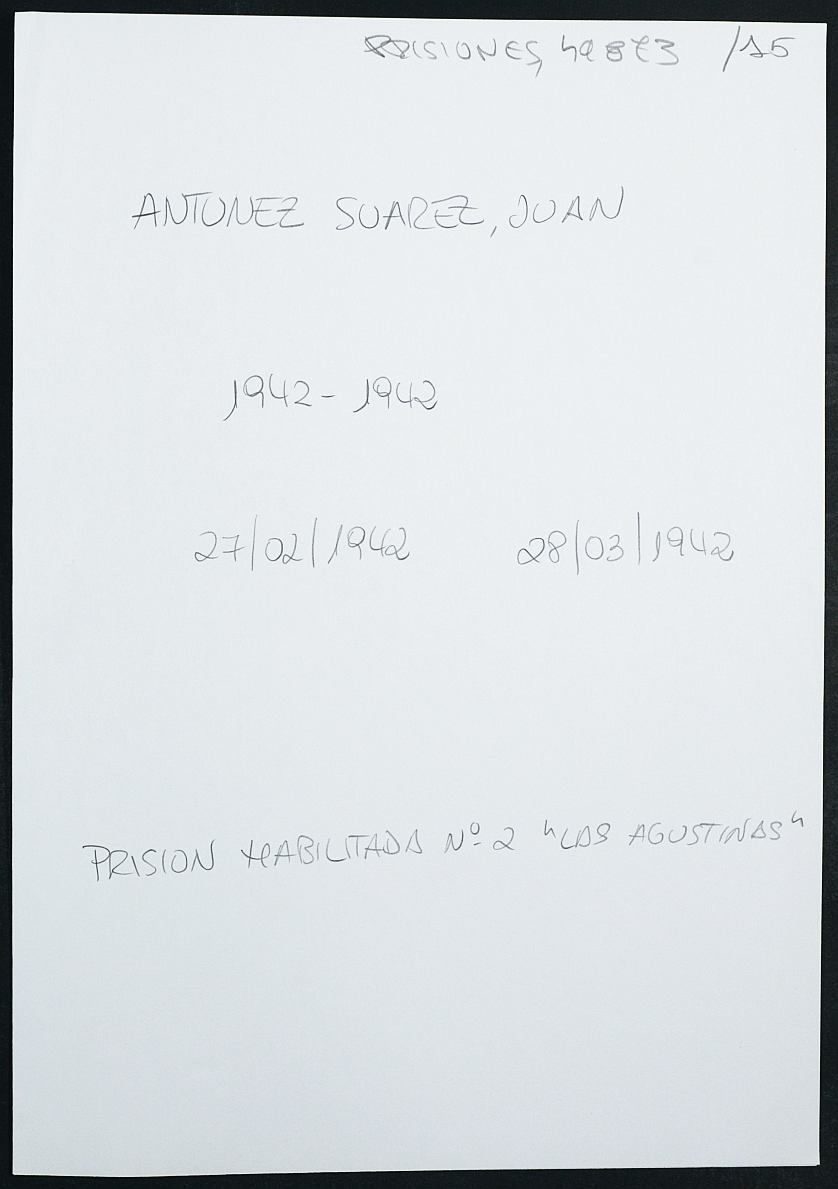 PRISIONES, 42873 /15
ANTUNEZ SUAREZ, JUAN
1942 - 1942
27/02/1942 28/03/1942
PRISION HABILITADA Nº 2 "LAS AGUSTINAS"